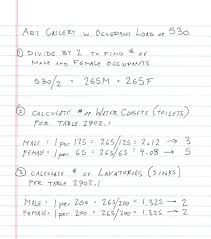 ART GALLERY W. OCCUPANT LOAD OF 530
① DIVIDE BY 2 TO FIND # OF
MALE AND FEMALE OCCUPANTS
530/2 = 265M + 265F
② CALCULATE # OF WATER CLOSETS (TOILETS)
PER TABLE 2902.1
MALE = 1 per 125 = 265/125 = 2.12 → 3
FEMALE = 1 per 65 = 265/65 = 4.08 → 5
③ CALCULATE # OF LAVATORIES (SINKS)
PER TABLE 2902.1
MALE = 1 per 200 = 265/200 = 1.325 → 2
FEMALE = 1 per 200 = 265/200 = 1.325 → 2